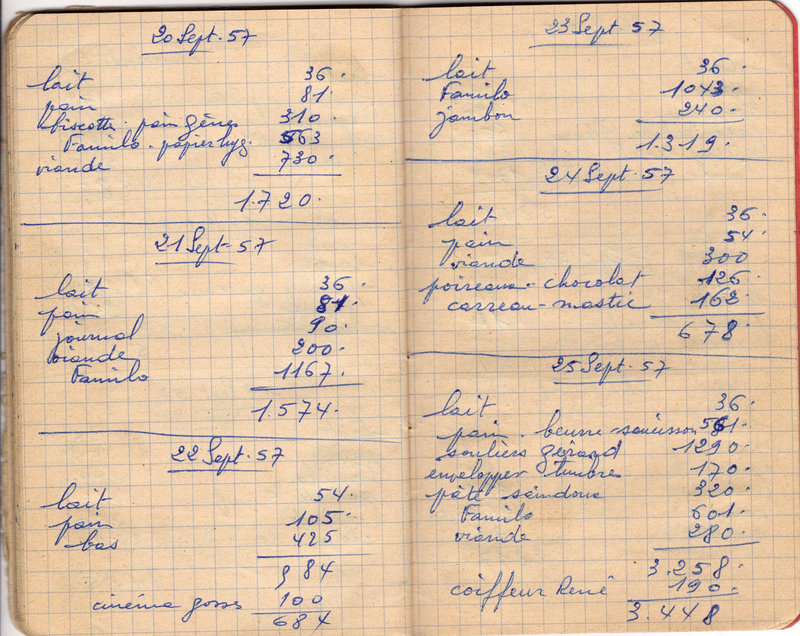 20 Sept. 57
lait 36.
pain 81.
biscottes. pain gênes 310.
Familo. papier hyg. 563
viande 730.
1.720.
21 Sept. 57
lait 36.
pain 81.
journal 90.
viande 200.
Familo 1167.
1.574.
22 Sept. 57
lait 54.
pain 105.
bas 425
584
cinéma gosses 100
684
23 Sept 57
lait 36.
Familo 1043.
jambon 240.
1.319.
24 Sept. 57
lait 36.
pain 54.
viande 300
poireaux. chocolat 126.
carreau-mastic 162.
678.
25 Sept. 57
lait 36.
pain. beurre-saucisson 561.
souliers gérard 1290.
enveloppes timbres 170.
pâte saindoux 320.
Familo 601.
viande 280.
3.258.
coiffeur René 190.
3.448